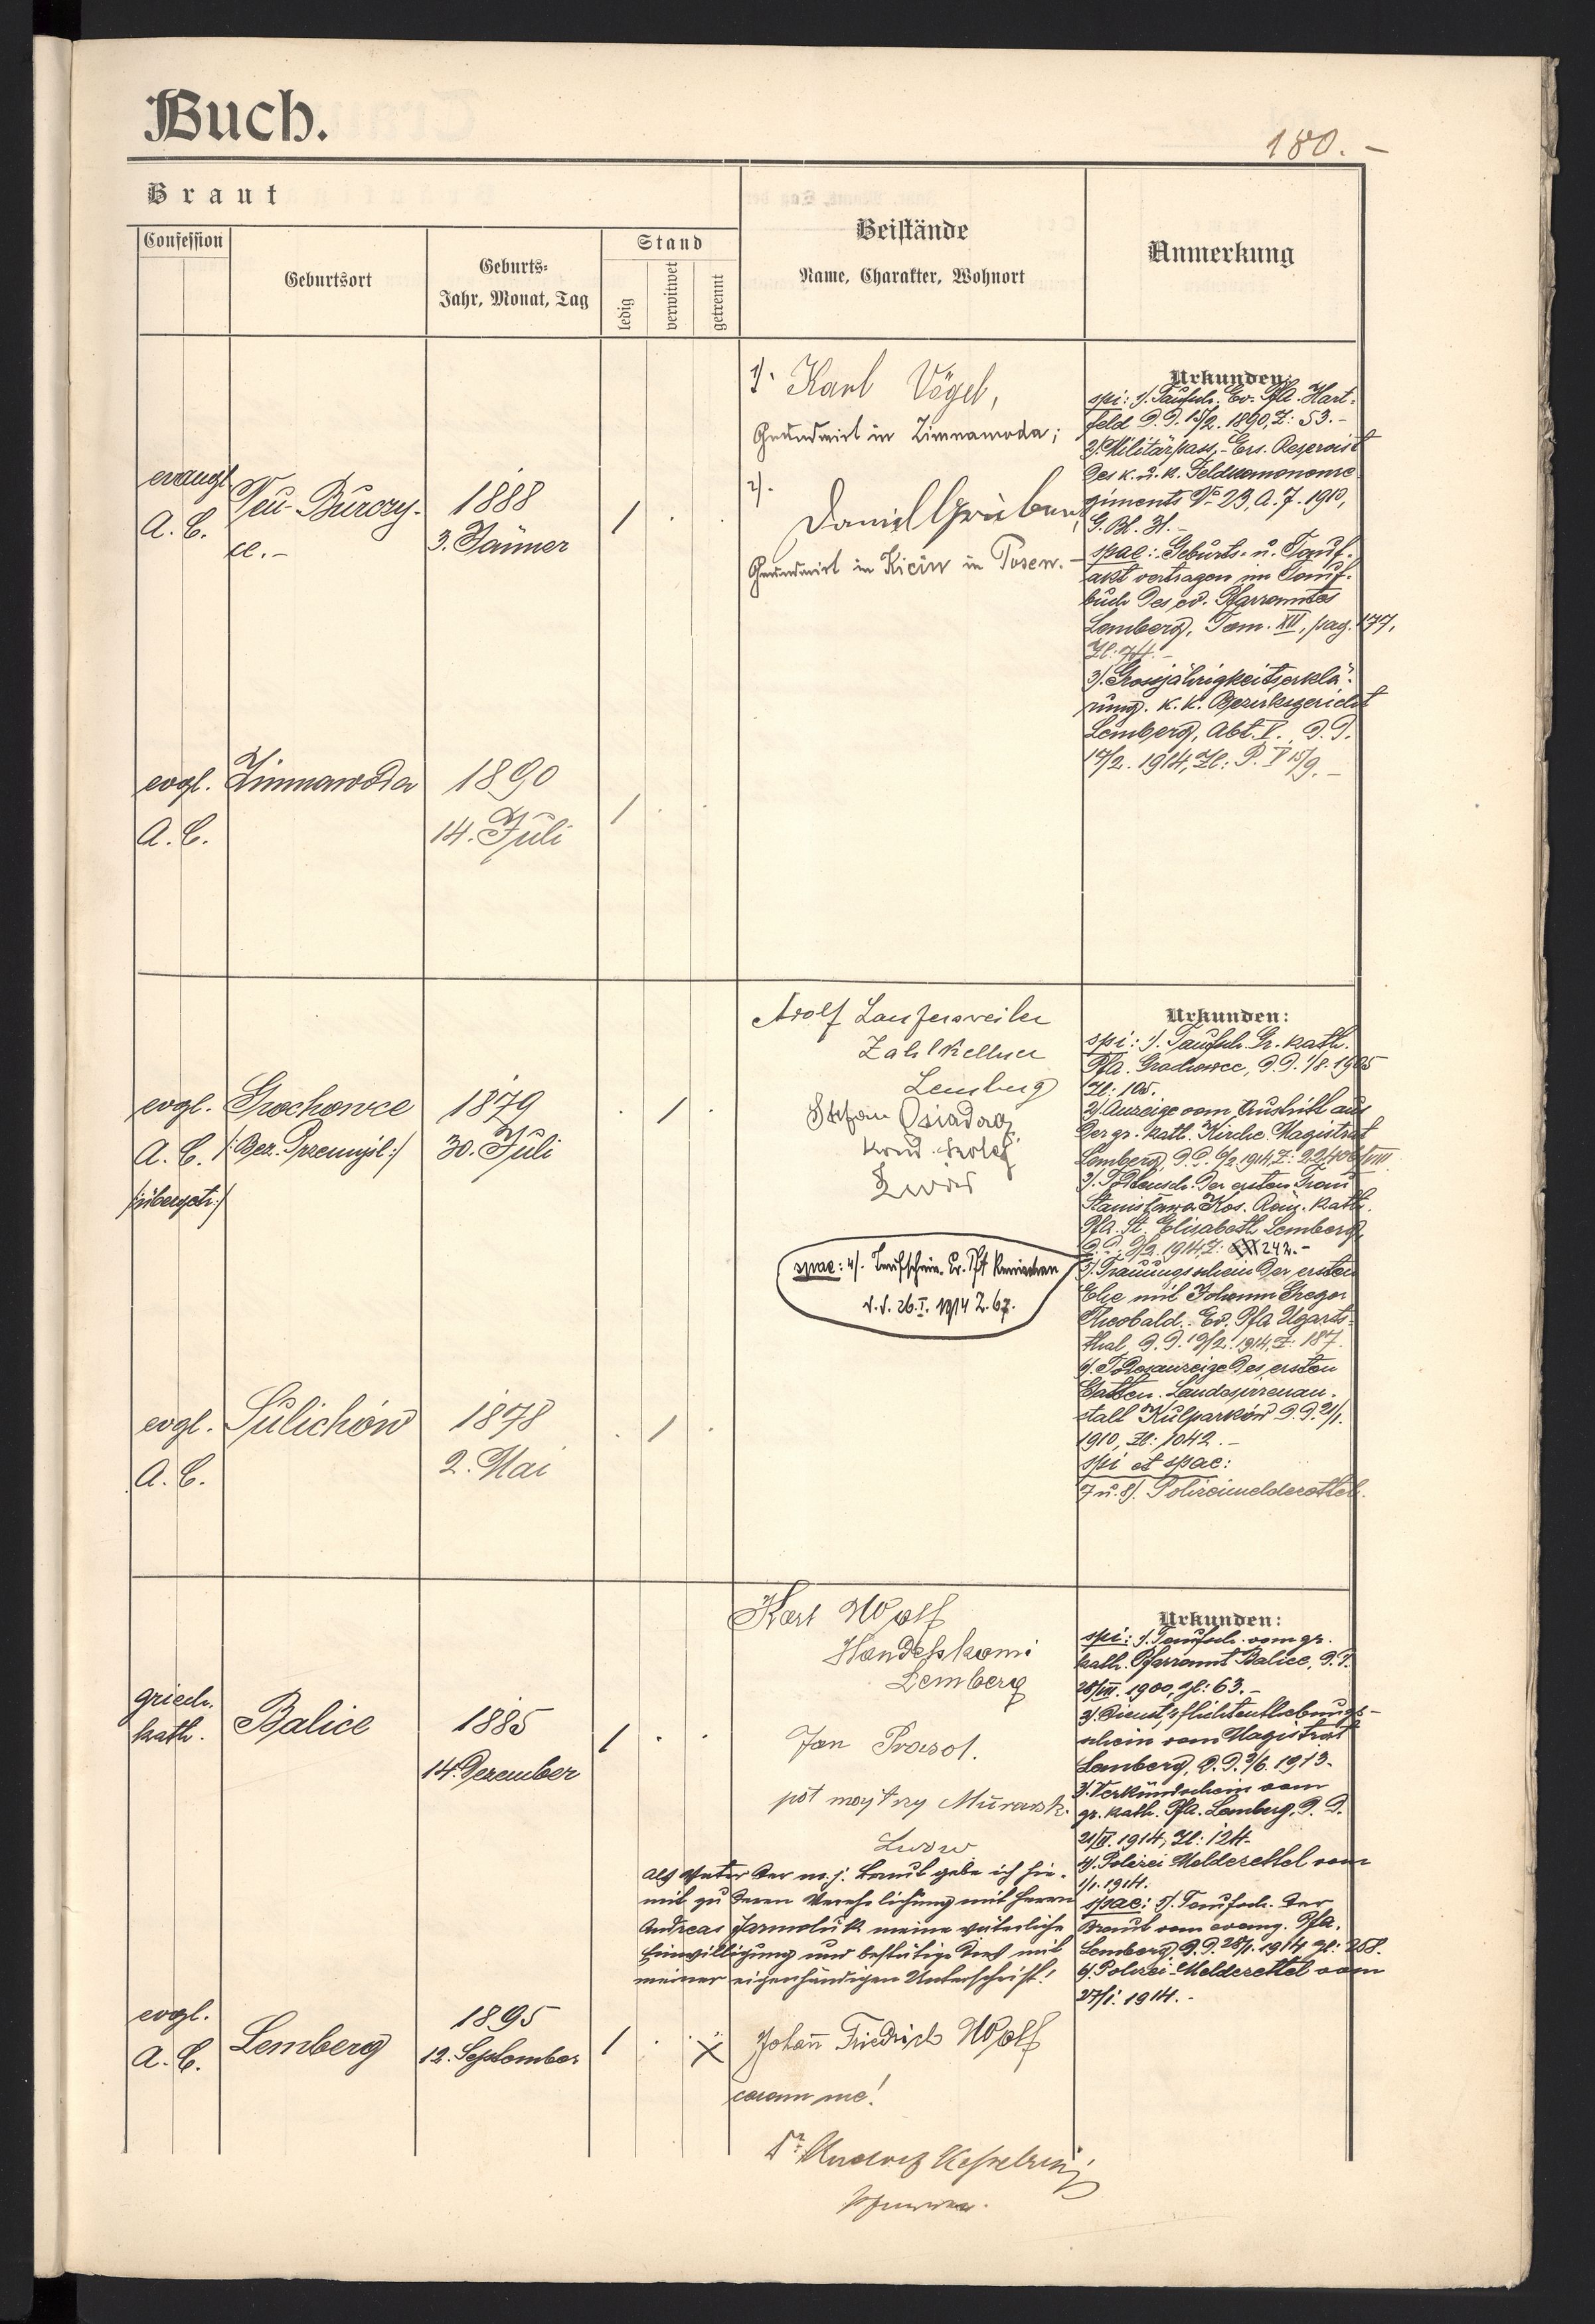 Buch.
180.-
Braut
Confession
Geburtsort
Geburts-
Jahr, Monat, Tag
Stand
ledig
verwitwet
getrennt
Beistände
Name, Charakter, Wohnort
Anmerkung
evangl.
A. C.
Neu-Burczy-
ce.-
1888
3. Jänner
/ . .
1). Karl Vögel,
Grundwirt in Zimnawoda;
2).
Daniel Gruber,
Grundwirt in Kicin in Posen.-
Urkunden:
spi: 1). Taufsch. Ev. Pfa. Hart-
feld d.d. 15/2. 1890, Z: 53.-
2). Militärpass,- Ers. Reservist
des k. u. k. Feldkanonenre-
giments No 23, A. J. 1910,
G. Bl. 31.-
spae: Geburts- u. Tauf-
akt vertragen im Tauf-
buch des ev. Pfarramtes
Lemberg, Tom. XII, pag. 177,
Zl: 74.-
3). Grossjährigkeitserklä-
rung. k. k. Bezirksgericht
Lemberg, Abt. V., d.d.
17/2. 1914, Zl: P. V 15/9.-
evgl.
A. C.
Zimnawoda
1890
14. Juli
/ . .
evgl.
A. C.
/:übergetr:/
Grochowce
/:Bez. Przemysl:/
1879
30. Juli
. / .
Adolf Laufersweiler
Zahlkellner
Lemberg
Stefan Osiadacz
Lwów
spae: 4). Taufschein. Ev. Pfa
d.d. 26.I. 1914 Z. 67.
Urkunden:
spi: 1). Taufsch. Gr. kath.
Pfa. Grochowce, d.d. 1/8. 1905
Zl: 105.
2). Anzeige vom Austritt aus
der gr. kath. Kirche. Magistrat
Lemberg, d.d. 6/2 1914, Z:
3). Todtensch. der ersten Frau
Stanisława Kos. Röm. kath.
Pfa. St. Elisabeth Lemberg,
d.d. 9/2. 1914, Z: 242.-
5). Trauungsschein der ersten
Ehe mit Johann Gregor
Theobald. Ev. Pfa. Ugarts-
thal, d.d. 19/2. 1914, Z: 187.
6). Todesanzeige des ersten
Gatten. Landesirrenan-
stalt Kulparków d.d. 21/1.
1910, Zl: 1042.-
spi et spae:
7 u. 8). Polizeimeldezettel.
evgl.
A. C.
Sulichów
1878
2. Mai
. / .
griech.
kath.
Balice
1885
14. Dezember
/ . .
Karl Wolf
Handelskomi
Lemberg
Jan Prasol.
Lwów
Als Vater der m. j. Braut gebe ich hie-
mit zu deren Verehelichung mit Herrn
Andreas Jarmoluk meine väterliche
Einwilligung und bestätige dies mit
meiner eigenhändigen Unterschrift!
Urkunden:
spi: 1). Taufsch. vom gr.
kath. Pfarramt Balice, d.d.
28/VII. 1900, gl: 63.-
2). Dienstpflichtenthebungs-
schein vom Magistrat
Lemberg, d.d. 3/6. 1913.
3). Verkündschein vom
gr. kath. Pfa. Lemberg, d.d.
21/II. 1914, Zl: 124.
4). Polizei Meldezettel vom
1/1. 1914.
spae: 5). Taufsch. der
Braut vom evang. Pfa.
Lemberg d.d. 28/1. 1914 gl: 268.
6). Polizei-Meldezettel vom
27/I. 1914.-
evgl.
A. C.
Lemberg
1895
12. September
/ . .
X Johann Friedrich Wolf
coram me!
Dr. Rudolf Kesselring
Pfarrer.